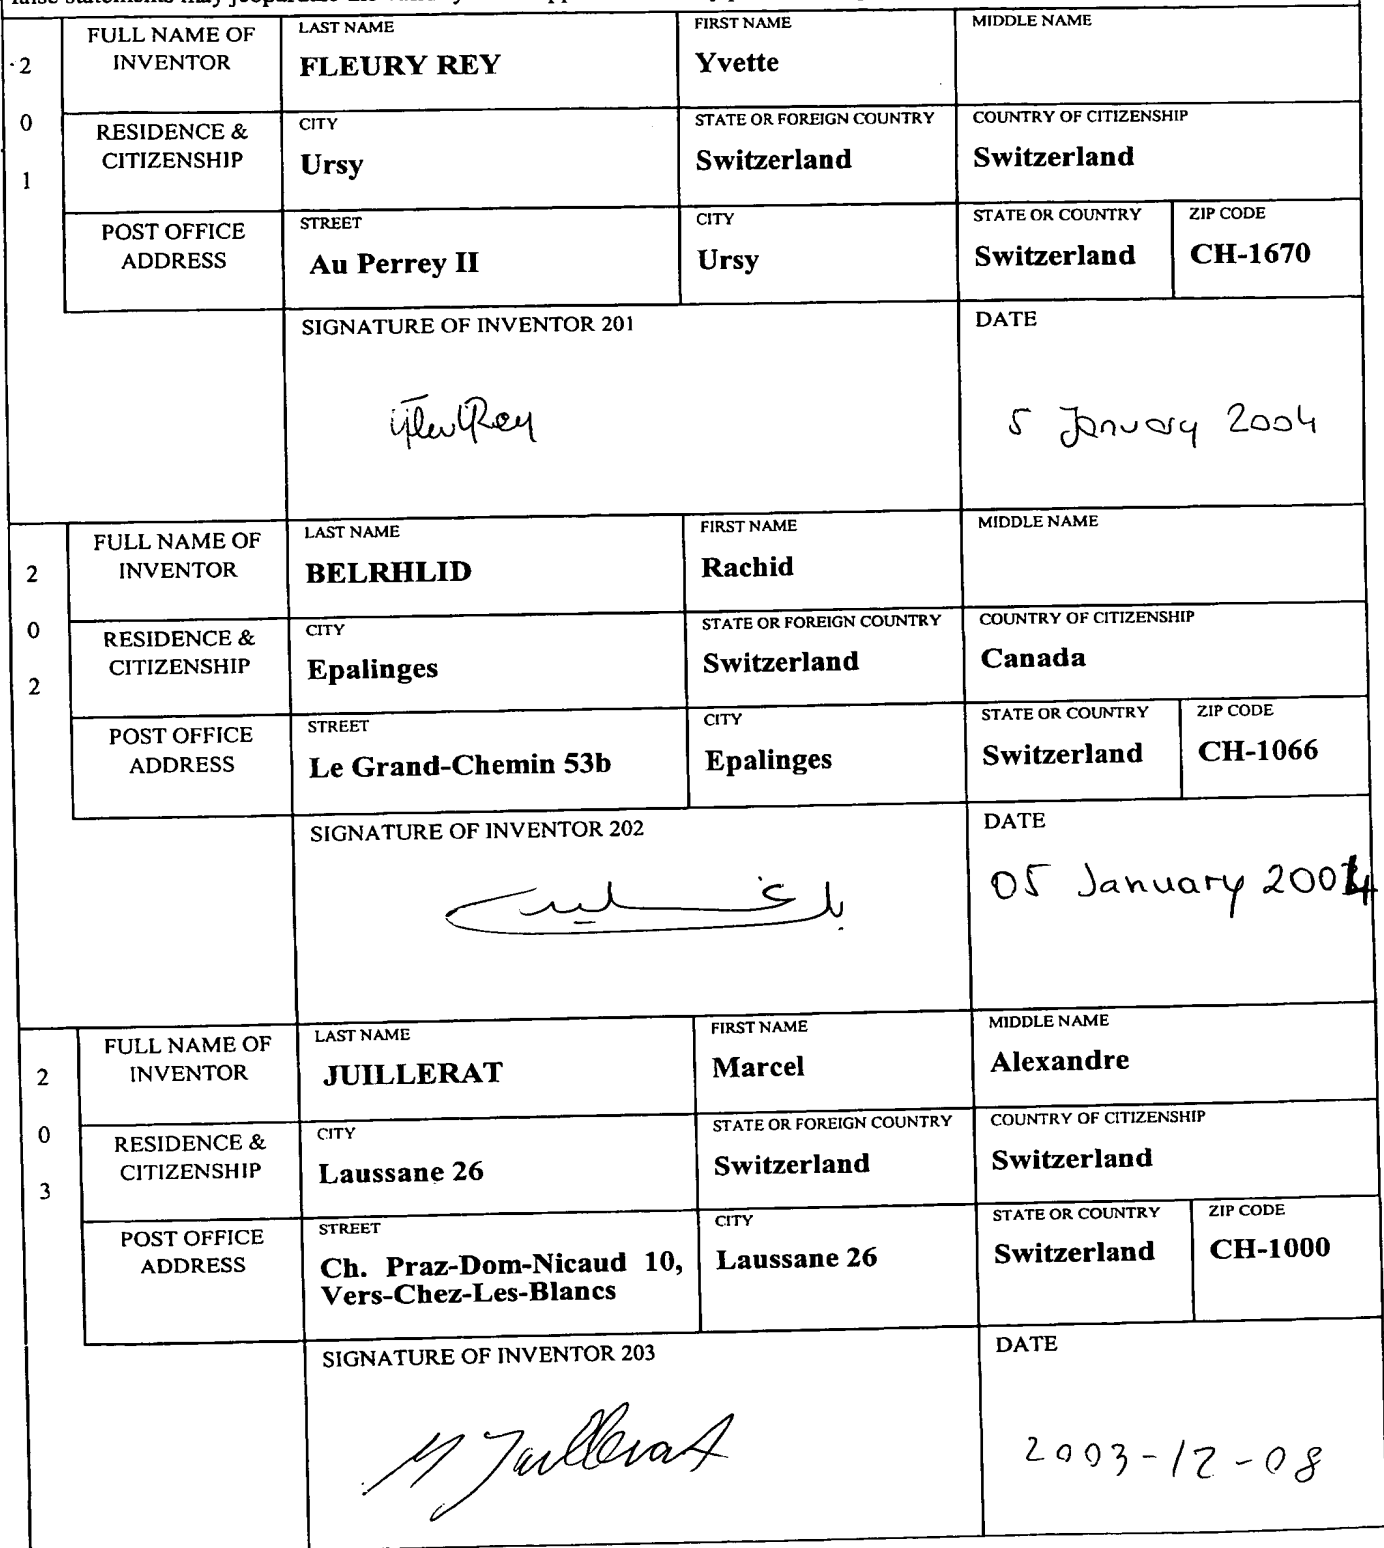 2 0 1
FULL NAME OF INVENTOR
LAST NAME
FLEURY REY
FIRST NAME
Yvette
MIDDLE NAME
RESIDENCE & CITIZENSHIP
CITY
Ursy
STATE OR FOREIGN COUNTRY
Switzerland
COUNTRY OF CITIZENSHIP
Switzerland
POST OFFICE ADDRESS
STREET
Au Perrey II
CITY
Ursy
STATE OR COUNTRY
Switzerland
ZIP CODE
CH-1670
SIGNATURE OF INVENTOR 201
DATE
5 January 2004
2 0 2
FULL NAME OF INVENTOR
LAST NAME
BELRHLID
FIRST NAME
Rachid
MIDDLE NAME
RESIDENCE & CITIZENSHIP
CITY
Epalinges
STATE OR FOREIGN COUNTRY
Switzerland
COUNTRY OF CITIZENSHIP
Canada
POST OFFICE ADDRESS
STREET
Le Grand-Chemin 53b
CITY
Epalinges
STATE OR COUNTRY
Switzerland
ZIP CODE
CH-1066
SIGNATURE OF INVENTOR 202
DATE
05 January 2004
2 0 3
FULL NAME OF INVENTOR
LAST NAME
JUILLERAT
FIRST NAME
Marcel
MIDDLE NAME
Alexandre
RESIDENCE & CITIZENSHIP
CITY
Laussane 26
STATE OR FOREIGN COUNTRY
Switzerland
COUNTRY OF CITIZENSHIP
Switzerland
POST OFFICE ADDRESS
STREET
Ch. Praz-Dom-Nicaud 10,
Vers-Chez-Les-Blancs
CITY
Laussane 26
STATE OR COUNTRY
Switzerland
ZIP CODE
CH-1000
SIGNATURE OF INVENTOR 203
M Juillerat
DATE
2003-12-08